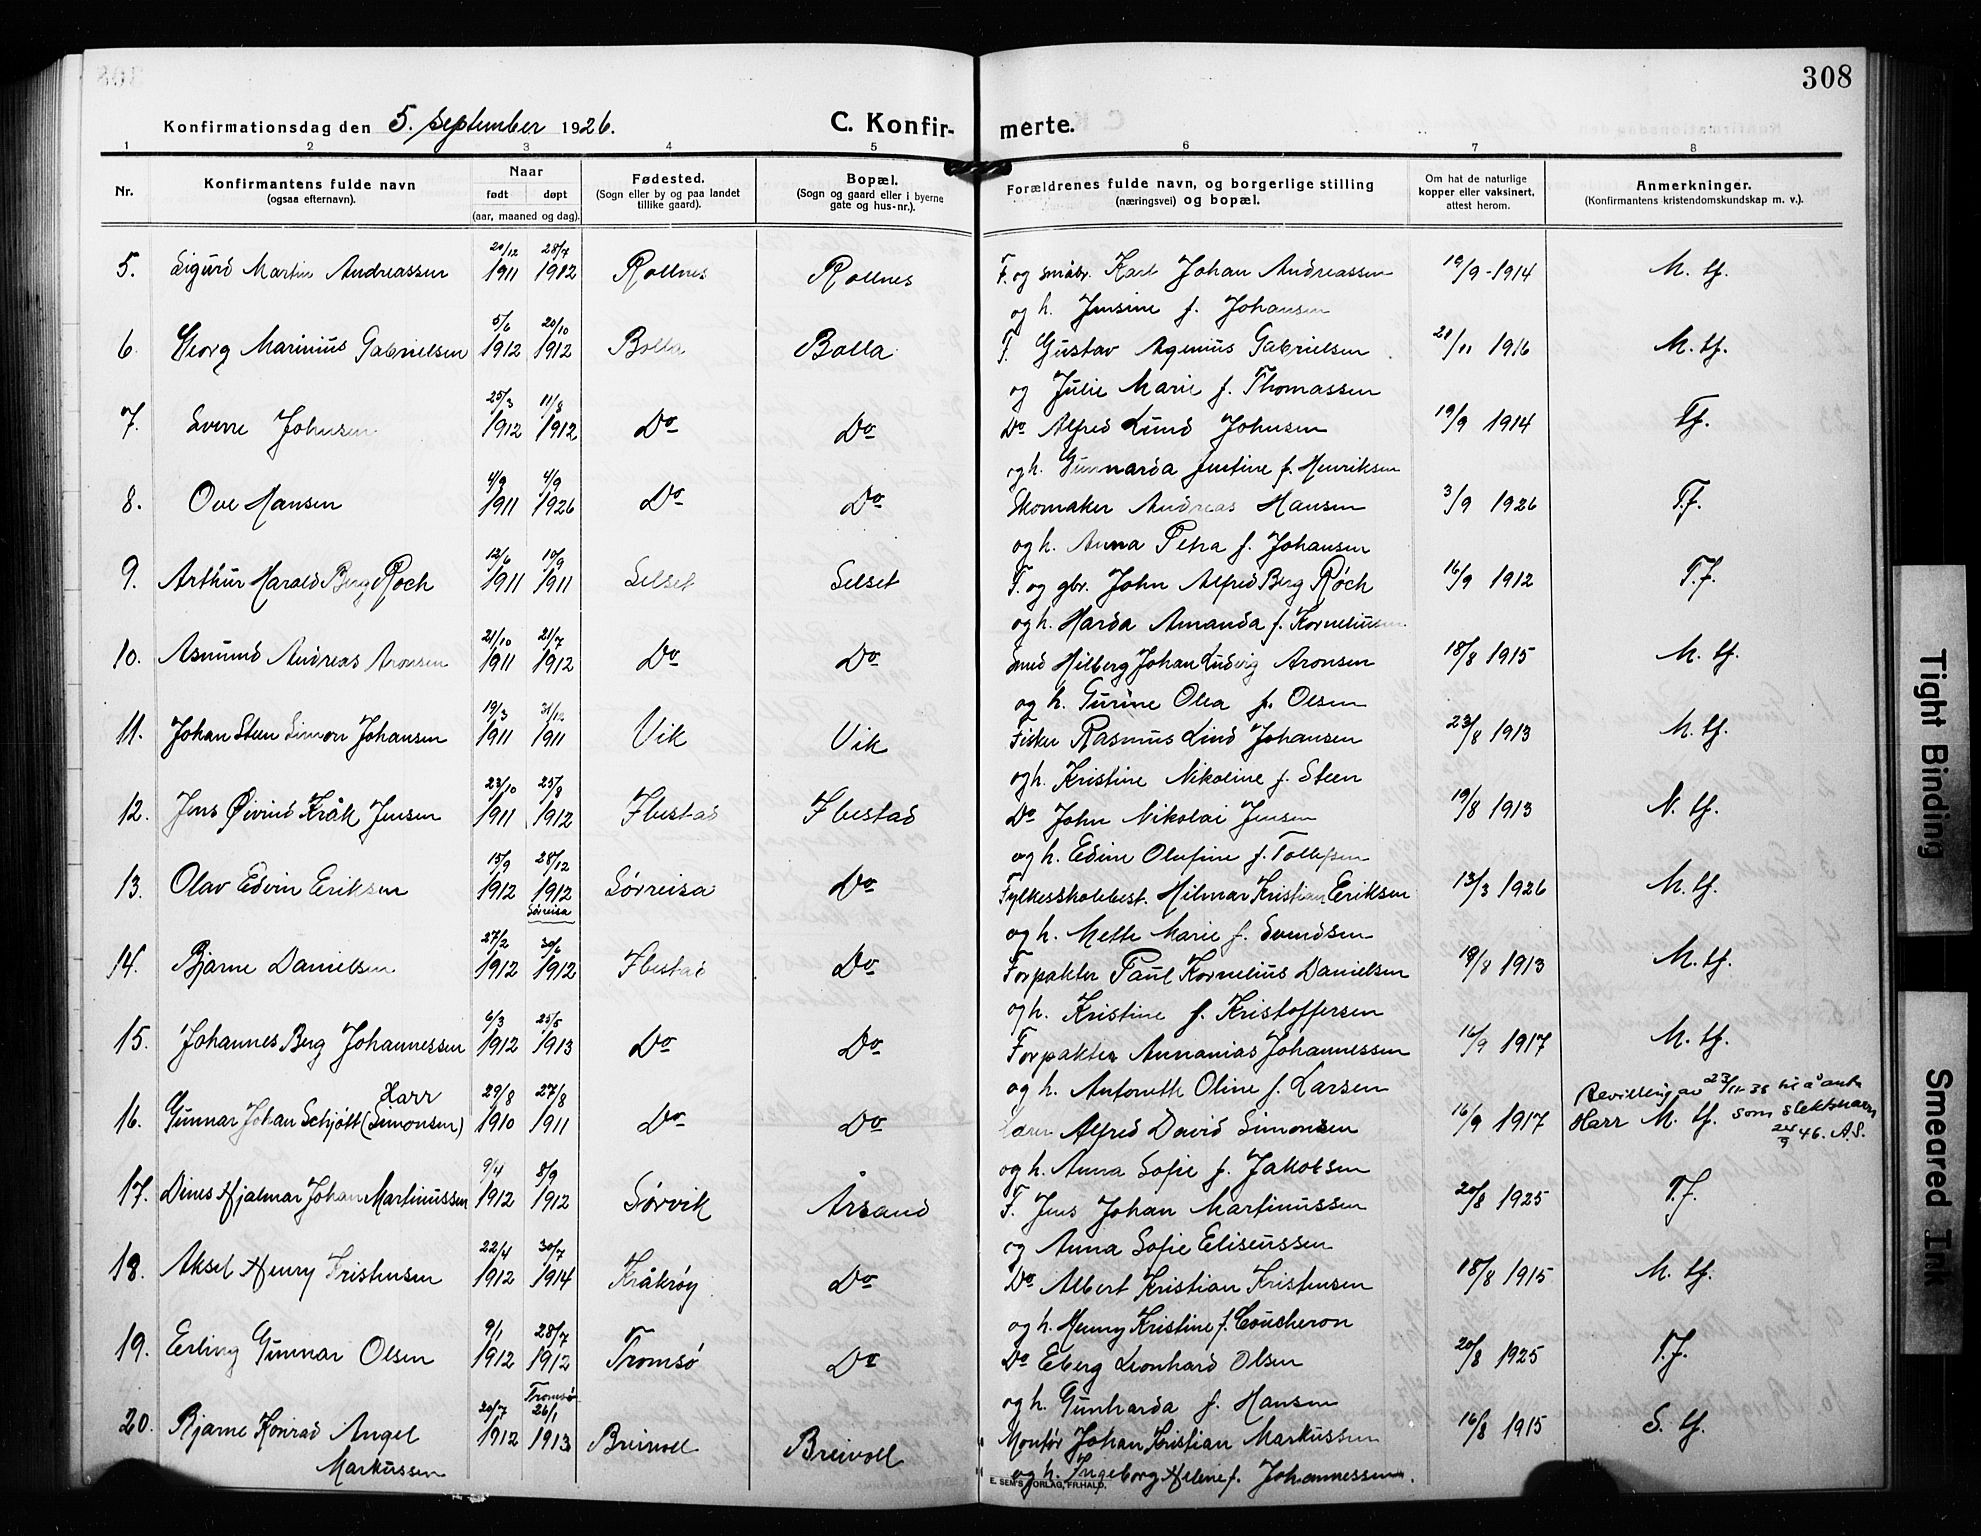 308
Konfirmationsdag den 5. september 1926. C. Konfirmerte.
1 2 3 4 5 6 7 8
Nr. Konfirmantens fulde navn (ogsaa efternavn). Naar født døpt (aar, maaned og dag). Fødested. (Sogn eller by og paa landet tillike gaard). Bopæl. (Sogn og gaard eller i byerne gate og hus-nr.). Forældrenes fulde navn, og borgerlige stilling (næringsvei) og bopæl. Om hat de naturlige kopper eller vaksinert, attest herom. Anmerkninger. (Konfirmantens kristendomskundskap m. v.).
5. Sigurd Martin Andreassen 20/12 1911 28/7 1912 Rollnes Rollnes F. og småbr. Karl Johan Andreassen 19/9-1914 M. tf.
og h. Jensine f. Johansen
6. Georg Marinius Gabrielsen 5/6 1912 20/10 1912 Bolla Bolla F. Gustav Agenius Gabrielsen 21/11 1916 M. tf.
og Julie Marie f. Thomassen
7. Sverre Johnsen 25/3 1912 11/8 1912 Do Do Do Alfred Lund Johnsen 19/9 1914 Tf.
og h. Gunnarda Justine f. Henriksen
8. Ove Hansen 4/9 1911 4/9 1926 Do Do Skomaker Andreas Hansen 3/9 1926 T.f.
og h. Anna Petra f. Johansen
9. Arthur Harald Berg Røch 12/6 1911 10/9 1911 Selset Selset F. og gbr. John Alfred Berg Røch 16/9 1912 T.f.
og h. Harda Amanda f. Korneliussen
10. Asmund Andreas Aronsen 21/10 1911 21/7 1912 Do Do Smed Hilberg Johan Ludvig Aronsen 18/8 1915 M. tf.
og h. Gurine Olea f. Olsen
11. Johan Steen Simon Johansen 19/3 1911 31/12 1911 Vik Vik Fisker Rasmus Lind Johansen 23/8 1913 M. tf.
og h. Kristine Nikoline f. Steen
12. Jens Øivind Kråk Jensen 23/10 1911 25/8 1912 Ibestad Ibestad Do John Nikolai Jensen 19/8 1913 N. tf.
og h. Edine Olufine f. Tollefsen
13. Olav Edvin Eriksen 15/9 1912 28/12 1912 Sørreisa Sørreisa Do Fylkesskolebest. Hilmar Kristian Eriksen 13/3 1926 M. tf.
og h. Mette Marie f. Svendsen
14. Bjarne Danielsen 27/2 1912 30/6 1912 Ibestad Do Forpakter Paul Kornelius Danielsen 19/8 1913 M. tf.
og h. Kristine f. Kristoffersen
15. Johannes Berg Johannessen 6/3 1912 25/5 1913 Do Do Forpakter Annanias Johannessen 16/9 1917 M. tf.
og h. Antoneth Oline f. Larsen
16. Gunnar Johan Schjött (Simonsen) Harr 29/8 1910 27/8 1911 Do Do Lærer Alfred David Simonsen 16/9 1917 Bevilling av 23/11-38 til å anta Harr M. tf. som slektsnavn 24/9 46. A.S.
og h. Anna Sofie f. Jakobsen
17. Dines Hjalmar Johan Martinussen 9/4 1912 8/9 1912 Sørvik Årsand F. Jens Johan Martinussen 20/8 1925 T.f.
og Anna Sofie Eliseussen
18. Aksel Henry Kristensen 22/4 1912 30/7 1914 Kråkrøy Do Do Albert Kristian Kristensen 18/8 1915 M. tf.
og h. Henny Kristine f. Coucheron
19. Erling Gunnar Olsen 9/1 1912 28/7 1912 Tromsø Tromsø Do Do Eberg Leonhard Olsen 20/8 1925 T.f.
og h. Gunharda f. Hansen
20. Bjarne Konrad Angel Markussen 20/7 1912 26/1 1913 Breivoll Breivoll Montør Johan Kristian Markussen 16/8 1915 S. tf.
og h. Ingeborg Helene f. Johannessen.
E. SEM'S FORLAG, FR.HALD.
Tight Binding
Smeared Ink